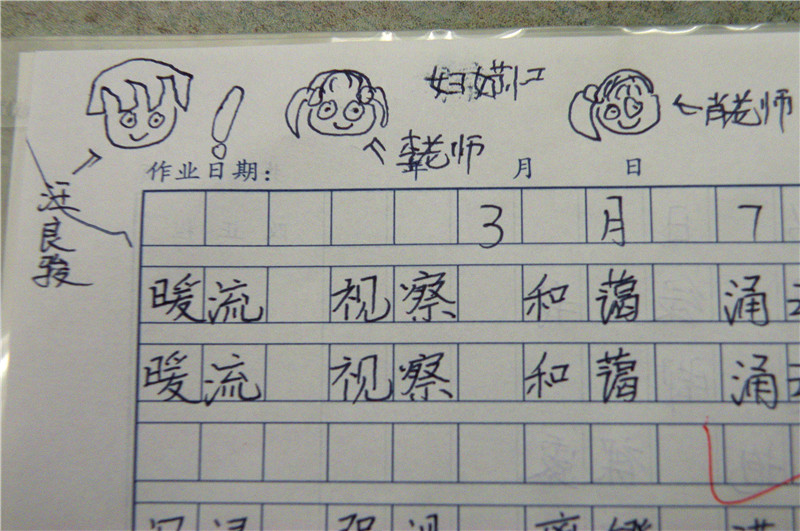 肖老师
李老师
作业日期: 年 月 日
汪良骏
3 月 7
暖流 视察 和蔼 涌
暖流 视察 和蔼 涌